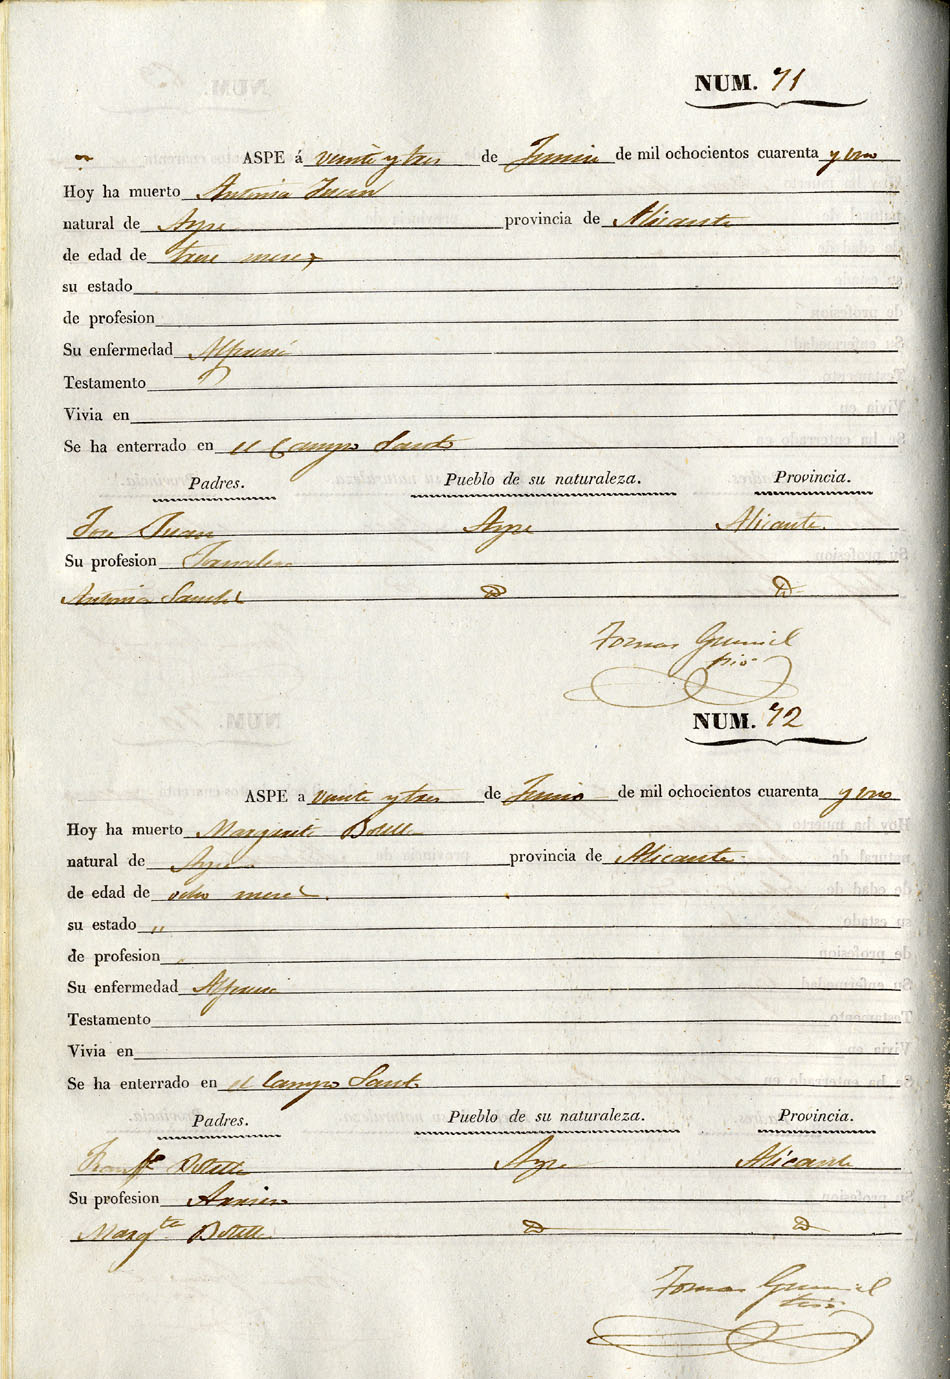 NUM. 71
ASPE á veinte y tres de Junio de mil ochocientos cuarenta y uno
Hoy ha muerto Antonia Juan
natural de Aspe provincia de Alicante
de edad de trece meses
su estado
de profesion
Su enfermedad
Testamento
Vivia en
Se ha enterrado en el Campo Santo
Padres. Pueblo de su naturaleza. Provincia.
Jose Juan Aspe Alicante.
Su profesion Jornalero
Antonia Sanchez
Tomas
NUM. 72
ASPE a veinte y tres de Junio de mil ochocientos cuarenta y uno
Hoy ha muerto Margarita Botella
natural de Aspe provincia de Alicante
de edad de ocho meses.
su estado "
de profesion
Su enfermedad
Testamento
Vivia en
Se ha enterrado en el Campo Santo
Padres. Pueblo de su naturaleza. Provincia.
Franco Botella Aspe Alicante
Su profesion Arriero
Margta Botella
Tomas